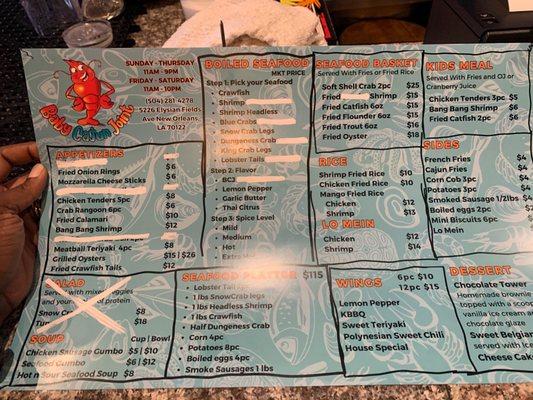 Baby Cajun Joint
SUNDAY - THURSDAY
11AM - 9PM
FRIDAY - SATURDAY
11AM - 10PM
(504) 281 4278
5226 Elysian Fields
Ave New Orleans
LA 70122
APPETIZERS
Fried Onion Rings $6
Mozzarella Cheese Sticks $6
Chicken Tenders 5pc $8
Crab Rangoon 6pc $6
Fried Calamari $10
Bang Bang Shrimp $12
Meatball Teriyaki 4pc $8
Grilled Oysters $15 | $26
Fried Crawfish Tails $12
SALAD
Served with mixed veggies
and your of protein
Snow Crab $8
$18
SOUP Cup | Bowl
Chicken Sausage Gumbo $5 | $10
Seafood Gumbo $6 | $12
Hot n Sour Seafood Soup $8
BOILED SEAFOOD
MKT PRICE
Step 1: Pick your Seafood
• Crawfish
• Shrimp
• Shrimp Headless
• Blue Crabs
• Snow Crab Legs
• Dungeness Crab
• King Crab Legs
• Lobster Tails
Step 2: Flavor
• BCJ
• Lemon Pepper
• Garlic Butter
• Thai Citrus
Step 3: Spice Level
• Mild
• Medium
• Hot
• Extra
SEAFOOD PLATTER $115
• Lobster Tail
• 1 lbs SnowCrab legs
• 1 lbs Headless Shrimp
• 1 lbs Crawfish
• Half Dungeness Crab
• Corn 4pc
• Potatoes 8pc
• Boiled eggs 4pc
• Smoke Sausages 1 lbs
SEAFOOD BASKET
Served With Fries or Fried Rice
Soft Shell Crab 2pc $25
Fried Shrimp $15
Fried Catfish 6oz $15
Fried Flounder 6oz $15
Fried Trout 6oz $16
Fried Oyster $18
RICE
Shrimp Fried Rice $10
Chicken Fried Rice $10
Mango Fried Rice
Chicken $12
Shrimp $13
LO MEIN
Chicken $12
Shrimp $14
WINGS 6pc $10
12pc $15
Lemon Pepper
KBBQ
Sweet Teriyaki
Polynesian Sweet Chili
House Special
KIDS MEAL
Served With Fries and OJ or
Cranberry Juice
Chicken Tenders 3pc $5
Bang Bang Shrimp $6
Fried Catfish 2pc $6
SIDES
French Fries $4
Cajun Fries $4
Corn Cob 3pc $4
Potatoes 3pc $4
Smoked Sausage 1/2lbs
Boiled eggs 2pc
Mini Biscuits 6pc
Lo Mein
DESSERT
Chocolate Tower
Homemade brownie
topped with a scoop
vanilla ice cream and
chocolate glaze
Sweet Belgian
served with ice
Cheese Cake